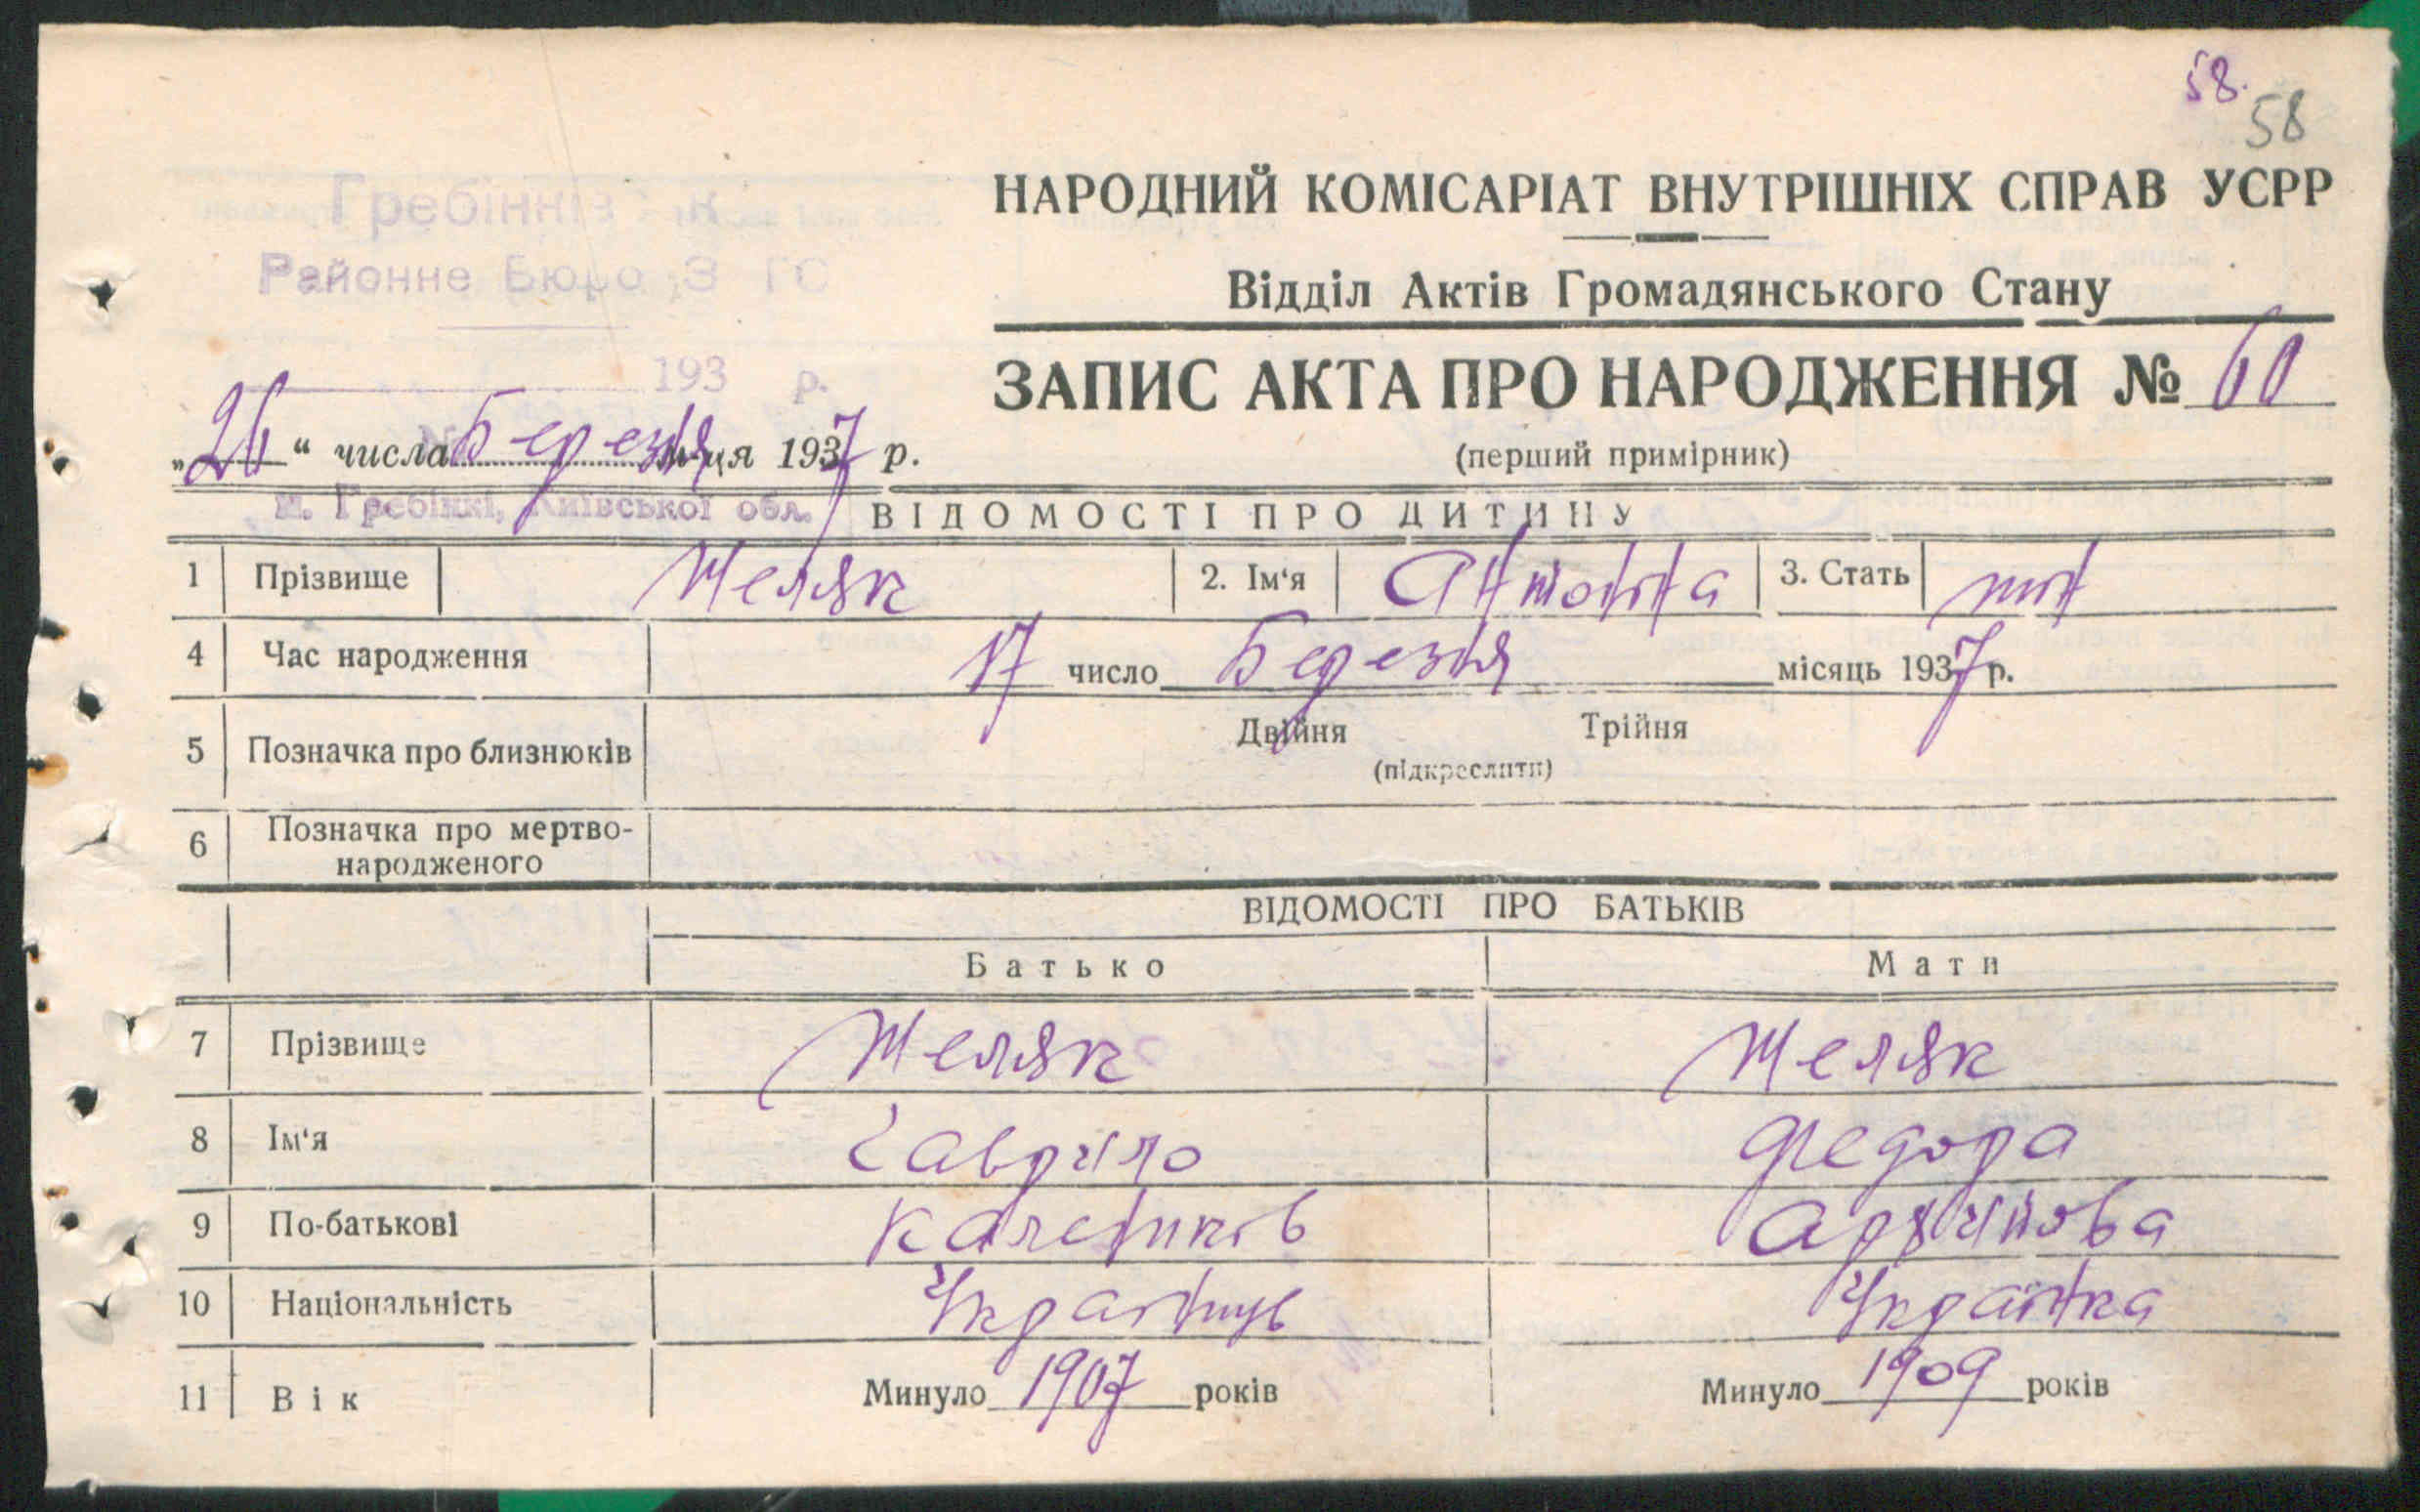 58.
58
НАРОДНИЙ КОМІСАРІАТ ВНУТРІШНІХ СПРАВ УСРР
Районне Бюро З ГС
Відділ Актів Громадянського Стану
193 р.
ЗАПИС АКТА ПРО НАРОДЖЕННЯ № 60
„26“ числа Березня м-ця 1937 р.
(перший примірник)
м. Гребінкі, Київської обл.
ВІДОМОСТІ ПРО ДИТИНУ
1 Прізвище Желяк 2. Ім‘я Антоніна 3. Стать
4 Час народження 17 число Березня місяць 1937 р.
5 Позначка про близнюків Двійня Трійня
(підкреслити)
6 Позначка про мертво-
народженого
ВІДОМОСТІ ПРО БАТЬКІВ
Батько Мати
7 Прізвище Желяк Желяк
8 Ім‘я Гаврило Федора
9 По-батькові Каленіков
10 Національність Українець Українка
11 Вік Минуло 1907 років Минуло 1909 років